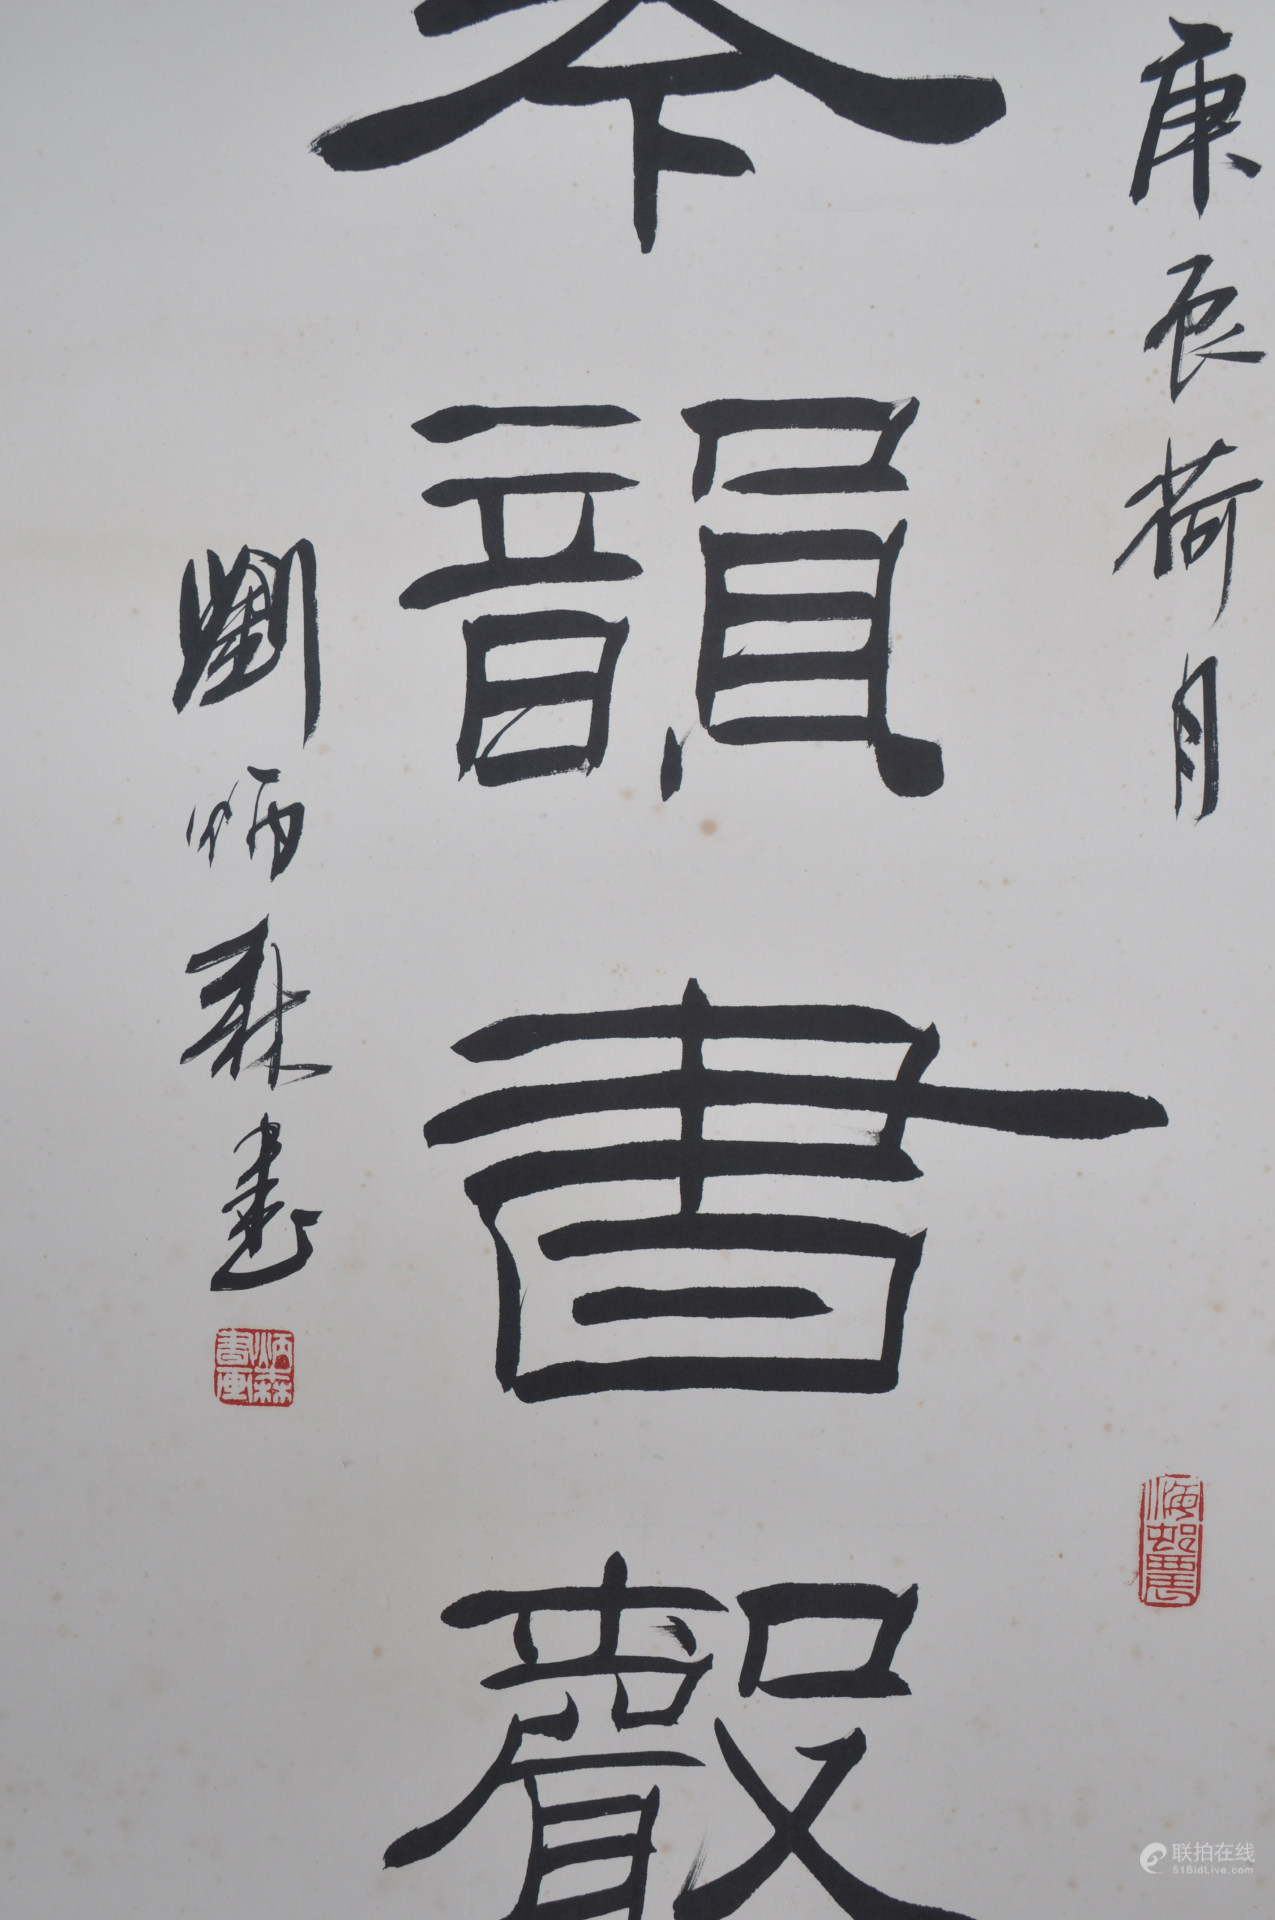 庚辰荷月
琴韻書聲
劉炳森書
炳森
書画
联拍在线
51BidLive.com